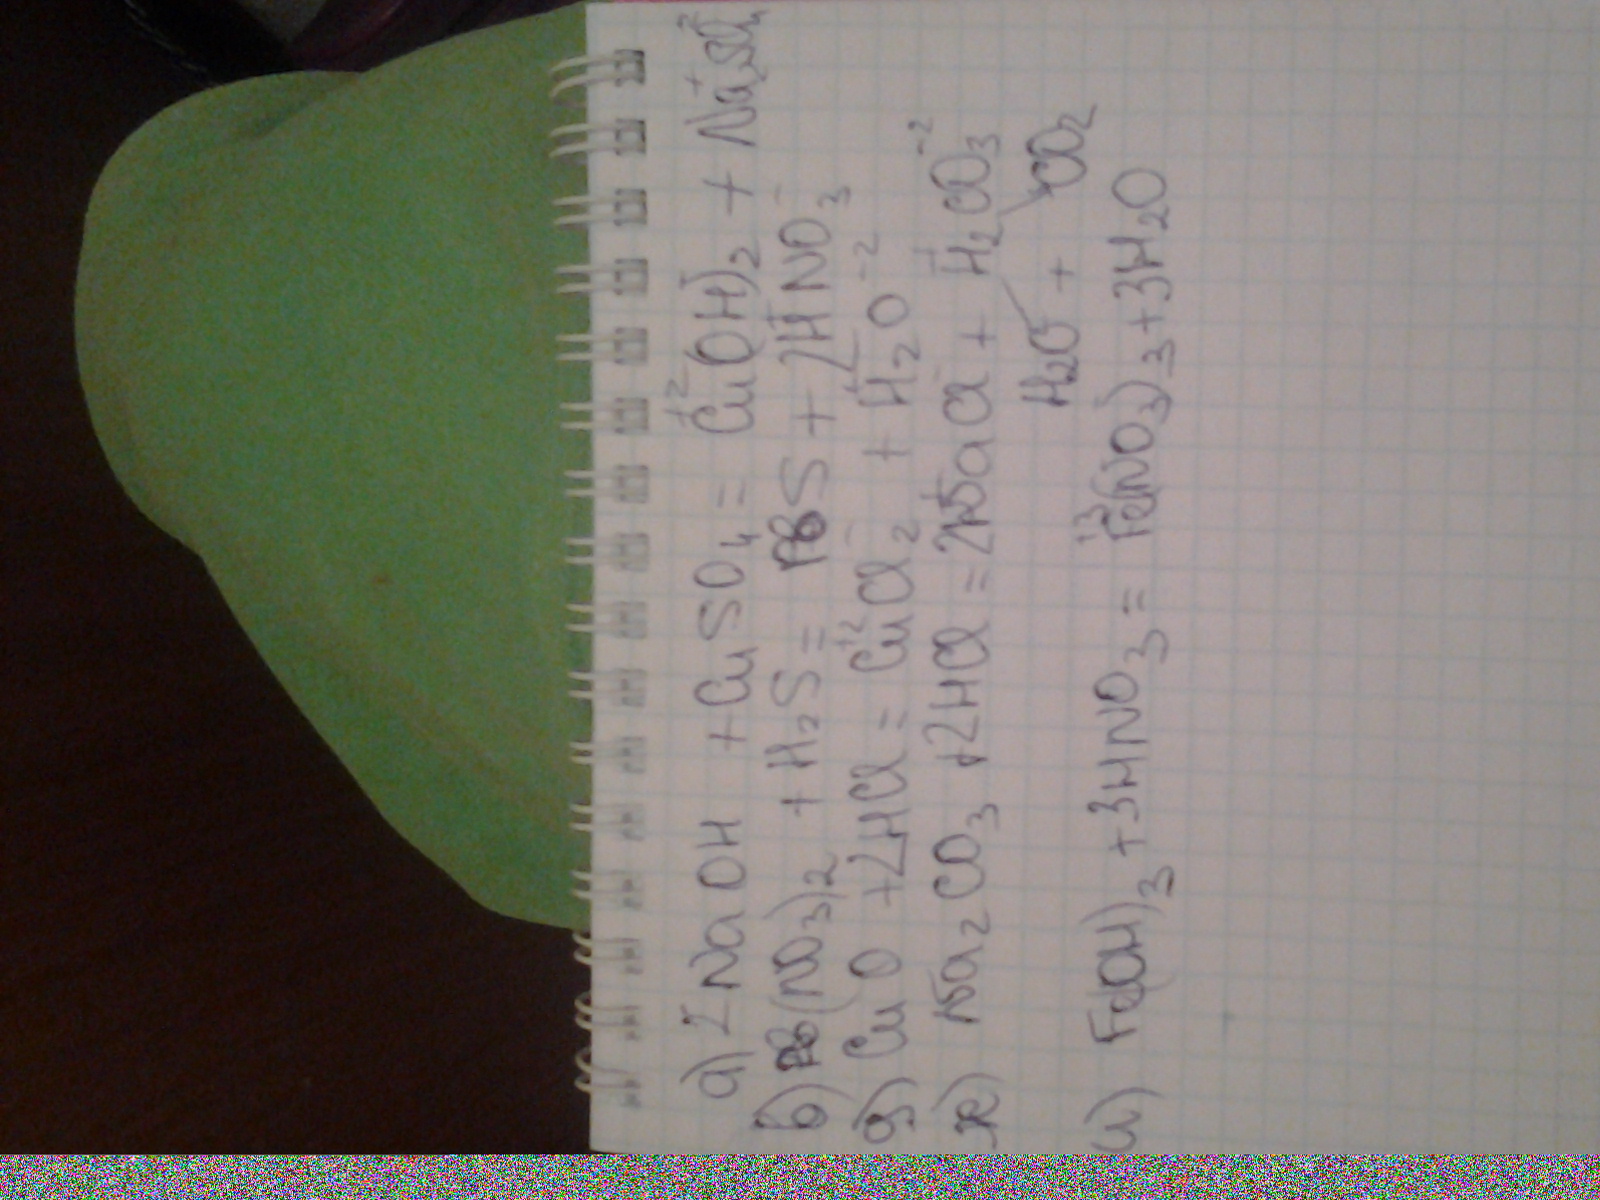 а) 2NaOH + CuSO₄ = Cu⁺²(OH)⁻₂ + Na⁺₂SO₄⁻²
в) Pb(NO₃)₂ + H₂S = PbS + 2H⁺NO₃⁻
д) CuO + 2HCl = Cu⁺²Cl⁻₂ + H⁺₂O⁻²
ж) Na₂CO₃ + 2HCl = 2Na⁺Cl⁻ + H⁺₂CO₃⁻²
H₂O + CO₂
и) Fe(OH)₃ + 3HNO₃ = Fe⁺³(NO₃)⁻₃ + 3H₂O